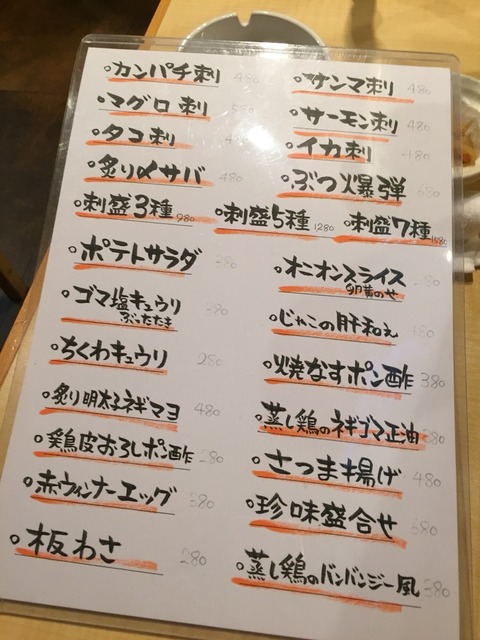 カンパチ刺 480
サンマ刺 480
マグロ刺 580
サーモン刺 480
タコ刺
イカ刺 480
炙り〆サバ 480
ぶつ爆弾 680
刺盛3種 980
刺盛5種 1280
刺盛7種 1580
ポテトサラダ 380
オニオンスライス
卵黄のせ
ゴマ塩キュウリ 380
ぶったたき
じゃこの肝和え 480
ちくわキュウリ 280
焼なすポン酢 380
炙り明太子ネギマヨ 480
蒸し鶏のネギゴマ正油
鶏皮おろしポン酢 380
さつま揚げ 480
赤ウィンナーエッグ 380
珍味盛合せ 680
板わさ 280
蒸し鶏のバンバンジー風 380